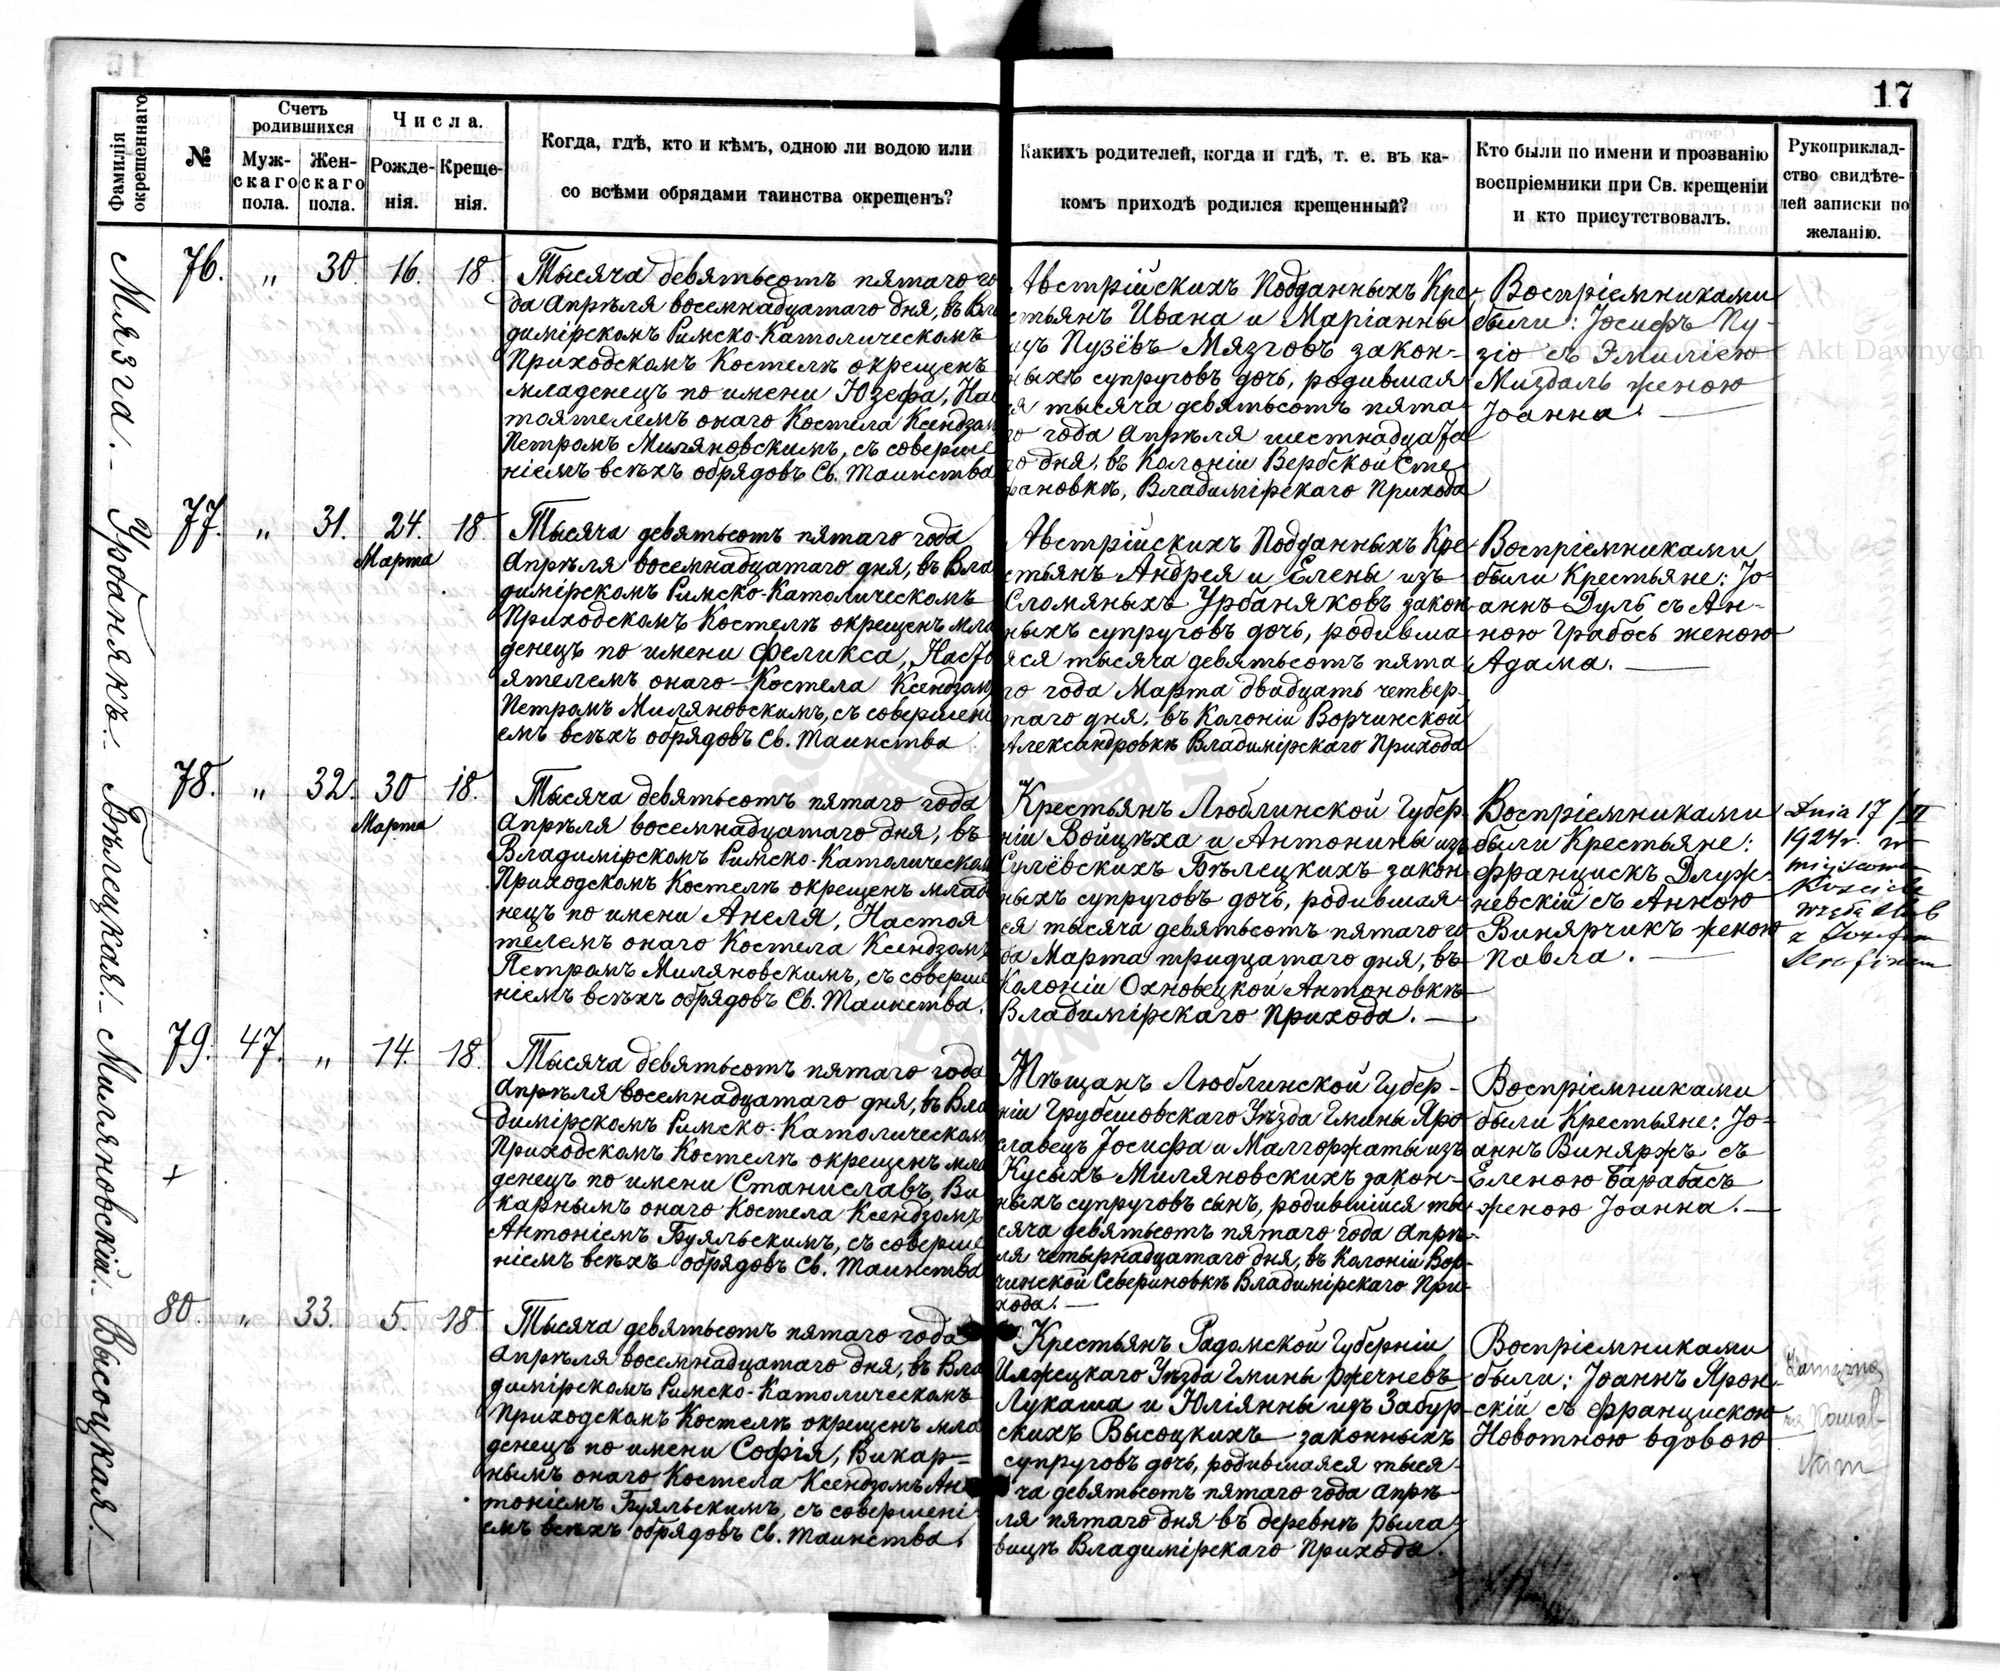 17
Фамилія окрещеннаго
№
Счетъ родившихся
Муж-
скаго
пола.
Жен-
скаго
пола.
Числа.
Рожде-
нія.
Креще-
нія.
Когда, гдѣ, кто и кѣмъ, одною ли водою или
со всѣми обрядами таинства окрещенъ?
Какихъ родителей, когда и гдѣ, т. е. въ ка-
комъ приходѣ родился крещенный?
Кто были по имени и прозванію
воспріемники при Св. крещеніи
и кто присутствовалъ.
Рукоприклад-
ство свидѣте-
лей записки по
желанію.
Мязга.
76. „ 30. 16. 18
Тысяча девятьсотъ пятаго го
да Апрѣля восемнадцатаго дня, въ Вла
димірскомъ Римско-Католическомъ
Приходскомъ Костелѣ окрещенъ
младенецъ по имени Юзефа, Нас
тоятелемъ онаго Костела Ксендзом
Петромъ Миляновскимъ, съ соверше
ніемъ всѣхъ обрядовъ Св. Таинства
Австрійскихъ Подданныхъ Кре
стьянъ Ивана и Маріанны
изъ Пузёвъ Мязговъ закон-
ныхъ супруговъ дочь, родившая
ся тысяча девятьсотъ пята-
го года Апрѣля шестнадцата
го дня, въ Колоніи Вербской Сте
фановкѣ, Владимірскаго Прихода
Воспріемниками
были: Іосифъ Пу-
зіо съ Эмиліею
Миздаль женою
Іоанна.
Урбанякъ.
77. „ 31. 24. Марта 18.
Тысяча девятьсотъ пятаго года
Апрѣля восемнадцатаго дня, въ Вла
димірскомъ Римско-Католическомъ
Приходскомъ Костелѣ окрещенъ мла
денецъ по имени Феликса, Насто
ятелемъ онаго Костела Ксендзом
Петромъ Миляновскимъ, съ совершені
емъ всѣхъ обрядовъ Св. Таинства
Австрійскихъ Подданныхъ Кре
стьянъ Андрея и Елены изъ
Сломяныхъ Урбаняковъ закон
ныхъ супруговъ дочь, родивша
яся тысяча девятьсотъ пята
го года Марта двадцать четвер-
таго дня, въ Колоніи Ворчинской
Александровкѣ Владимірскаго Прихода
Воспріемниками
были Крестьяне: Іо-
аннъ Дуль съ Ан-
ною Грабось женою
Адама.
Бѣлецкая.
78. „ 32. 30 Марта 18.
Тысяча девятьсотъ пятаго года
Апрѣля восемнадцатаго дня, въ
Владимірскомъ Римско-Католическом
Приходскомъ Костелѣ окрещенъ младе
нецъ по имени Анеля, Настоя
телемъ онаго Костела Ксендзомъ
Петромъ Миляновскимъ, съ соверше
ніемъ всѣхъ обрядовъ Св. Таинства.
Крестьянъ Люблинской Губер-
ніи Войцѣха и Антонины изъ
Сулёвскихъ Бѣлецкихъ закон
ныхъ супруговъ дочь, родившая-
ся тысяча девятьсотъ пятаго го
да Марта тридцатаго дня, въ
Колоніи Охновецкой Антоновкѣ
Владимірскаго Прихода.
Воспріемниками
были Крестьяне:
Францискъ Длуж-
невскій съ Анною
Винярчикъ женою
Павла.
Dnia 17/II
1924 r. w
Kościele
wzięła ślub
z Józefem
Serafinem
Миляновскій.
79. 47. „ 14. 18.
Тысяча девятьсотъ пятаго года
Апрѣля восемнадцатаго дня, въ Вла
димірскомъ Римско-Католическом
Приходскомъ Костелѣ окрещенъ мла
денецъ по имени Станиславъ, Ви
карнымъ онаго Костела Ксендзомъ
Антоніемъ Буяльскимъ, съ соверше
ніемъ всѣхъ обрядовъ Св. Таинства
Мѣщанъ Люблинской Губер-
ніи Грубешовскаго Уѣзда Гмины Яро
славецъ Іосифа и Малгоржаты изъ
Кусыхъ Миляновскихъ закон-
ныхъ супруговъ сынъ, родившійся ты
сяча девятьсотъ пятаго года Апрѣ-
ля четырнадцатаго дня, въ Колоніи Вор-
чинской Севериновкѣ Владимірскаго При-
хода.
Воспріемниками
были Крестьяне: Іо-
аннъ Виняржъ съ
Еленою Барабасъ
женою Іоанна.
Высоцкая.
80. „ 33. 5. 18
Тысяча девятьсотъ пятаго года
Апрѣля восемнадцатаго дня, въ Вла
димірскомъ Римско-Католическомъ
Приходскомъ Костелѣ окрещенъ мла
денецъ по имени Софія, Викар=
нымъ онаго Костела Ксендзомъ Ан
тоніемъ Буяльскимъ, съ совершені-
емъ всѣхъ обрядовъ Св. Таинства.
Крестьянъ Радомской Губерніи
Илжецкаго Уѣзда Гмины Ржечневъ
Лукаша и Юліянны изъ Забур-
скихъ Высоцкихъ законныхъ
супруговъ дочь, родившаяся тыся-
ча девятьсотъ пятаго года Апрѣ-
ля пятаго дня въ деревнѣ Рыла-
вицѣ Владимірскаго Прихода.
Воспріемниками
были: Іоаннъ Ярон-
скій съ Францискою
Новотною вдовою
Archiwum Główne Akt Dawnych